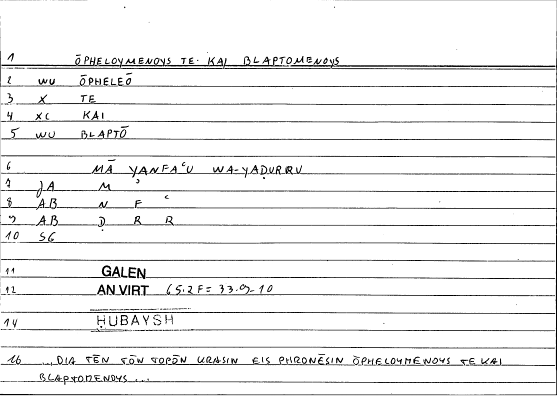 1 ŌPHELOYMENOYS TE KAI BLAPTOMENOYS
2 WU ŌPHELEŌ
3 X TE
4 XC KAI
5 WU BLAPTŌ
6 MĀ YANFAʿU WA-YAḌURRU
7 JA M ʾ
8 AB N F ʿ
9 AB Ḍ R R
10 SG
11 GALEN
12 AN VIRT 65.2F= 33.9-10
14 ḤUBAYSH
16 ...DIA TĒN TŌN TOPŌN KRASIN EIS PHRONĒSIN ŌPHELOYMENOYS TE KAI
BLAPTOMENOYS...